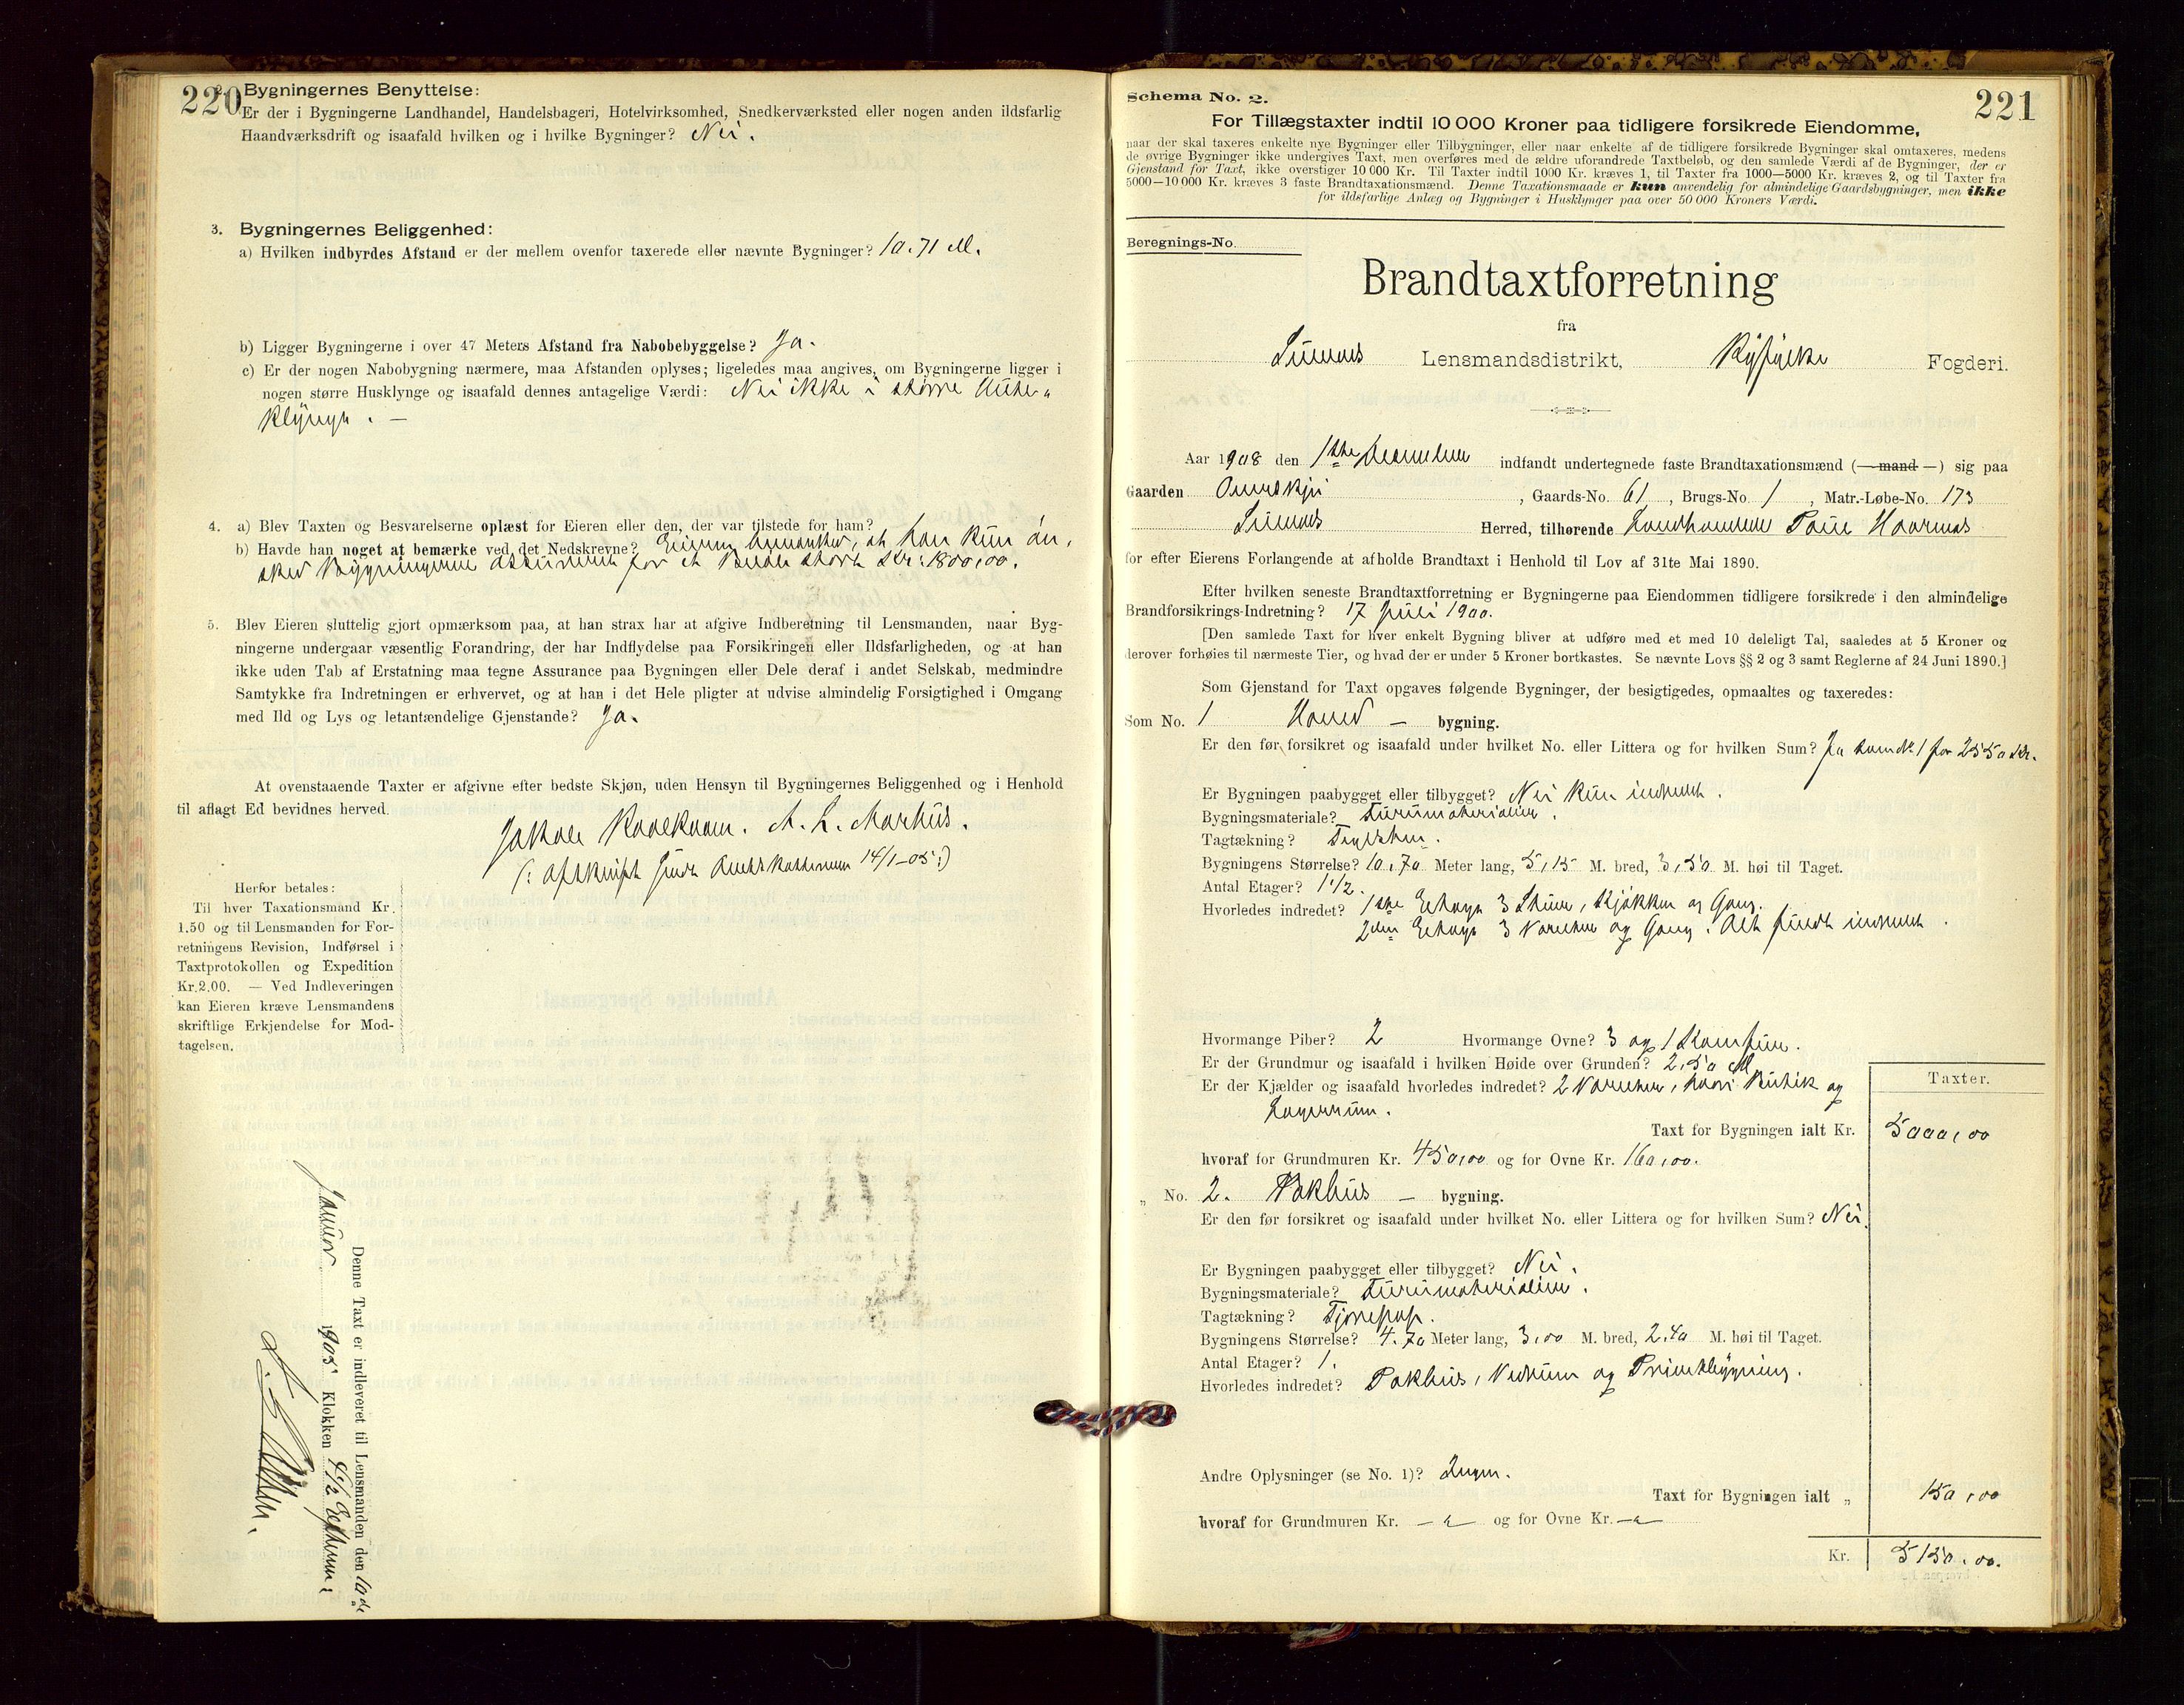 220
Bygningernes Benyttelse:
Er der i Bygningerne Landhandel, Handelsbageri, Hotelvirksomhed, Snedkerværksted eller nogen anden ildsfarlig
Haandværksdrift og isaafald hvilken og i hvilke Bygninger? Nei.
3. Bygningernes Beliggenhed:
a) Hvilken indbyrdes Afstand er der mellem ovenfor taxerede eller nævnte Bygninger? 10.71 M.
b) Ligger Bygningerne i over 47 Meters Afstand fra Nabobebyggelse? Ja.
c) Er der nogen Nabobygning nærmere, maa Afstanden oplyses; ligeledes maa angives, om Bygningerne ligger i
nogen større Husklynge og isaafald dennes antagelige Værdi: Nei ikke i større Huse-
klynge. —
4. a) Blev Taxten og Besvarelserne oplæst for Eieren eller den, der var tilstede for ham?
b) Havde han noget at bemærke ved det Nedskrevne? Eieren bemærker, at han kun øn-
sker Bygningerne assureret for et Beløb stort Kr: 1800,00.
5. Blev Eieren sluttelig gjort opmærksom paa, at han strax har at afgive Indberetning til Lensmanden, naar Byg-
ningerne undergaar væsentlig Forandring, der har Indflydelse paa Forsikringen eller Ildsfarligheden, og at han
ikke uden Tab af Erstatning maa tegne Assurance paa Bygningen eller Dele deraf i andet Selskab, medmindre
Samtykke fra Indretningen er erhvervet, og at han i det Hele pligter at udvise almindelig Forsigtighed i Omgang
med Ild og Lys og letantændelige Gjenstande? Ja.
At ovenstaaende Taxter er afgivne efter bedste Skjøn, uden Hensyn til Bygningernes Beliggenhed og i Henhold
til aflagt Ed bevidnes herved.
A. L. Marhus.
(: Afskrift sendt Amtskassereren 14/1-05:)
Herfor betales:
Til hver Taxationsmand Kr.
1.50 og til Lensmanden for For-
retningens Revision, Indførsel i
Taxtprotokollen og Expedition
Kr.2.00. — Ved Indleveringen
kan Eieren kræve Lensmandens
skriftlige Erkjendelse for Mod-
tagelsen.
Denne Taxt er indleveret til Lensmanden den 10de
Januar 1905 Klokken 4 1/2 Efterm.
221
Schema No. 2.
For Tillægstaxter indtil 10 000 Kroner paa tidligere forsikrede Eiendomme,
naar der skal taxeres enkelte nye Bygninger eller Tilbygninger, eller naar enkelte af de tidligere forsikrede Bygninger skal omtaxeres, medens
de øvrige Bygninger ikke undergives Taxt, men overføres med de ældre uforandrede Taxtbeløb, og den samlede Værdi af de Bygninger, der er
Gjenstand for Taxt, ikke overstiger 10 000 Kr. Til Taxter indtil 1000 Kr. kræves 1, til Taxter fra 1000—5000 Kr. kræves 2, og til Taxter fra
5000—10 000 Kr. kræves 3 faste Brandtaxationsmænd. Denne Taxationsmaade er kun anvendelig for almindelige Gaardsbygninger, men ikke
for ildsfarlige Anlæg og Bygninger i Husklynger paa over 50 000 Kroners Værdi.
Beregnings-No.
Brandtaxtforretning
fra
Lensmandsdistrikt, Ryfylke Fogderi.
Aar 1908 den 1ste indfandt undertegnede faste Brandtaxationsmænd (— mand —) sig paa
Gaarden , Gaards-No. 61 , Brugs-No. 1 , Matr.-Løbe-No. 173
Herred, tilhørende Landhandler
for efter Eierens Forlangende at afholde Brandtaxt i Henhold til Lov af 31te Mai 1890.
Efter hvilken seneste Brandtaxtforretning er Bygningerne paa Eiendommen tidligere forsikrede i den almindelige
Brandforsikrings-Indretning? 17 Juli 1900.
[Den samlede Taxt for hver enkelt Bygning bliver at udføre med et med 10 deleligt Tal, saaledes at 5 Kroner og
derover forhøies til nærmeste Tier, og hvad der er under 5 Kroner bortkastes. Se nævnte Lovs §§ 2 og 3 samt Reglerne af 24 Juni 1890.]
Som Gjenstand for Taxt opgaves følgende Bygninger, der besigtigedes, opmaaltes og taxeredes:
Som No. 1 Hoved — bygning.
Er den før forsikret og isaafald under hvilket No. eller Littera og for hvilken Sum? Ja som No 1 for 2550 Kr.
Er Bygningen paabygget eller tilbygget? Nei kun indredet.
Bygningsmateriale? Furumaterialier.
Tagtækning? Teglsten.
Bygningens Størrelse? 10,70 Meter lang, 5,15 M. bred, 3,50 M. høi til Taget.
Antal Etager? 1 1/2.
Hvorledes indredet? 1ste Etage 3 Stuer, Kjøkken og Gang.
2den Etage 3 Værelser og Gang. Alt indredet.
Hvormange Piber? 2 Hvormange Ovne? 3 og 1 Komfur.
Er der Grundmur og isaafald i hvilken Høide over Grunden? 2,50 M
Er der Kjælder og isaafald hvorledes indredet? 2 Værelser, hvori Butik og
Lagerrum.
Taxter.
Taxt for Bygningen ialt Kr. 5000,00
hvoraf for Grundmuren Kr. 450,00 og for Ovne Kr. 160,00.
" No. 2. Pakhus — bygning.
Er den før forsikret og isaafald under hvilket No. eller Littera og for hvilken Sum? Nei.
Er Bygningen paabygget eller tilbygget? Nei.
Bygningsmateriale? Furumaterialier.
Tagtækning? Tjærepap.
Bygningens Størrelse? 4.70 Meter lang, 3,00 M. bred, 2,40 M. høi til Taget.
Antal Etager? 1.
Hvorledes indredet? Pakhus, Vedrum og
Andre Oplysninger (se No. 1)? Ingen.
Taxt for Bygningen ialt " 150,00
hvoraf for Grundmuren Kr. og for Ovne Kr.
Kr. 5150,00.